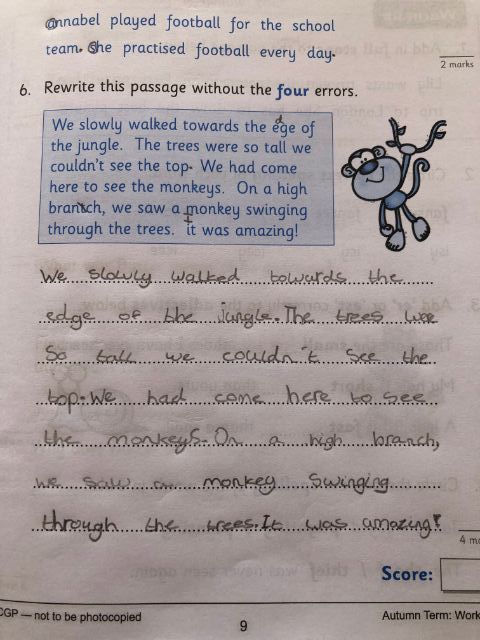 annabel played football for the school
team. She practised football every day.
2 marks
6. Rewrite this passage without the four errors.
We slowly walked towards the ege of
the jungle. The trees were so tall we
couldn't see the top. We had come
here to see the monkeys. On a high
brantch, we saw a monkey swinging
through the trees. it was amazing!
We slowly walked towards the
edge of the jungle. The trees
So tall we couldn't see the
top. We had come here to see
the monkeys. On a high branch,
we saw monkey swinging
through the trees. It was amazing!
4
Score:
CGP — not to be photocopied
9
Autumn Term: Work